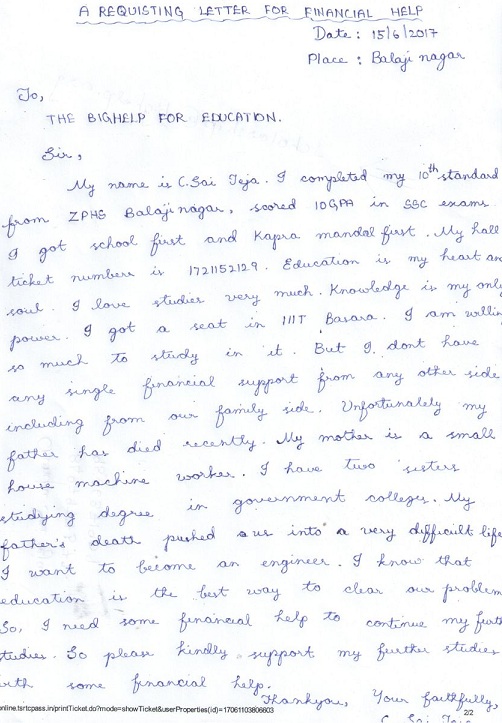 A REQUISTING LETTER FOR FINANCIAL HELP
Date : 15/6/2017
Place : Balaji nagar
To,
THE BIGHELP FOR EDUCATION.
Sir,
My name is C.Sai Teja. I completed my 10th standard
from ZPHS Balaji nagar, scored 10GPA in SSC exams
I got school first and Kapra mandal first. My hall
ticket numberr is 1721152129. Education is my heart an
soul. I love studies very much. Knowledge is my only
power. I got a seat in IIIT Basara. I am willin
so much to study in it. But I dont have
any single financial support from any other side
including from our family side. Unfortunately my
father has died recently. My mother is a small
house machine worker. I have two sisters
studying degree in government colleges. My
father's death pushed us into a very difficult life
I want to become an engineer. I know that
education is the best way to clear our problem
So, I need some financial help to continue my furth
studies. So please kindly support my further studies
with some financial help.
Thankyou, Your faithfully,
C. Sai Teja
online.tsrtcpass.in/printTicket.do?mode=showTicket&userProperties(id)=17061103806603 2/2